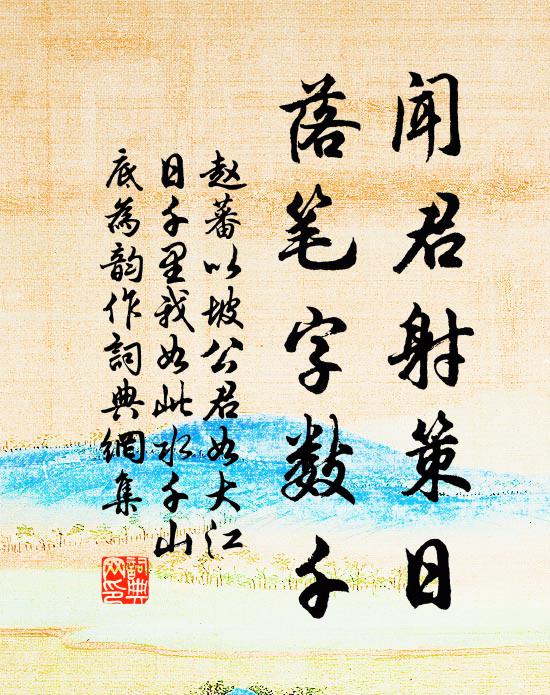 闻君射策日
落笔字数千
赵蕃以坡公君如大江
日千里我如此水千山
底為韵作詞典網集
詞典网印